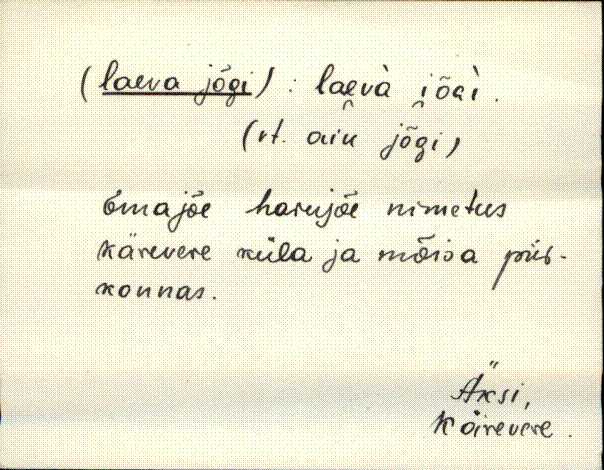 (laeva jõgi) : laevà jõgì.
(vt. ain jõgi)
Emajõe harujõe nimetus
Kärevere küla ja mõisa piir-
konnas.
Äksi,
Kärevere.